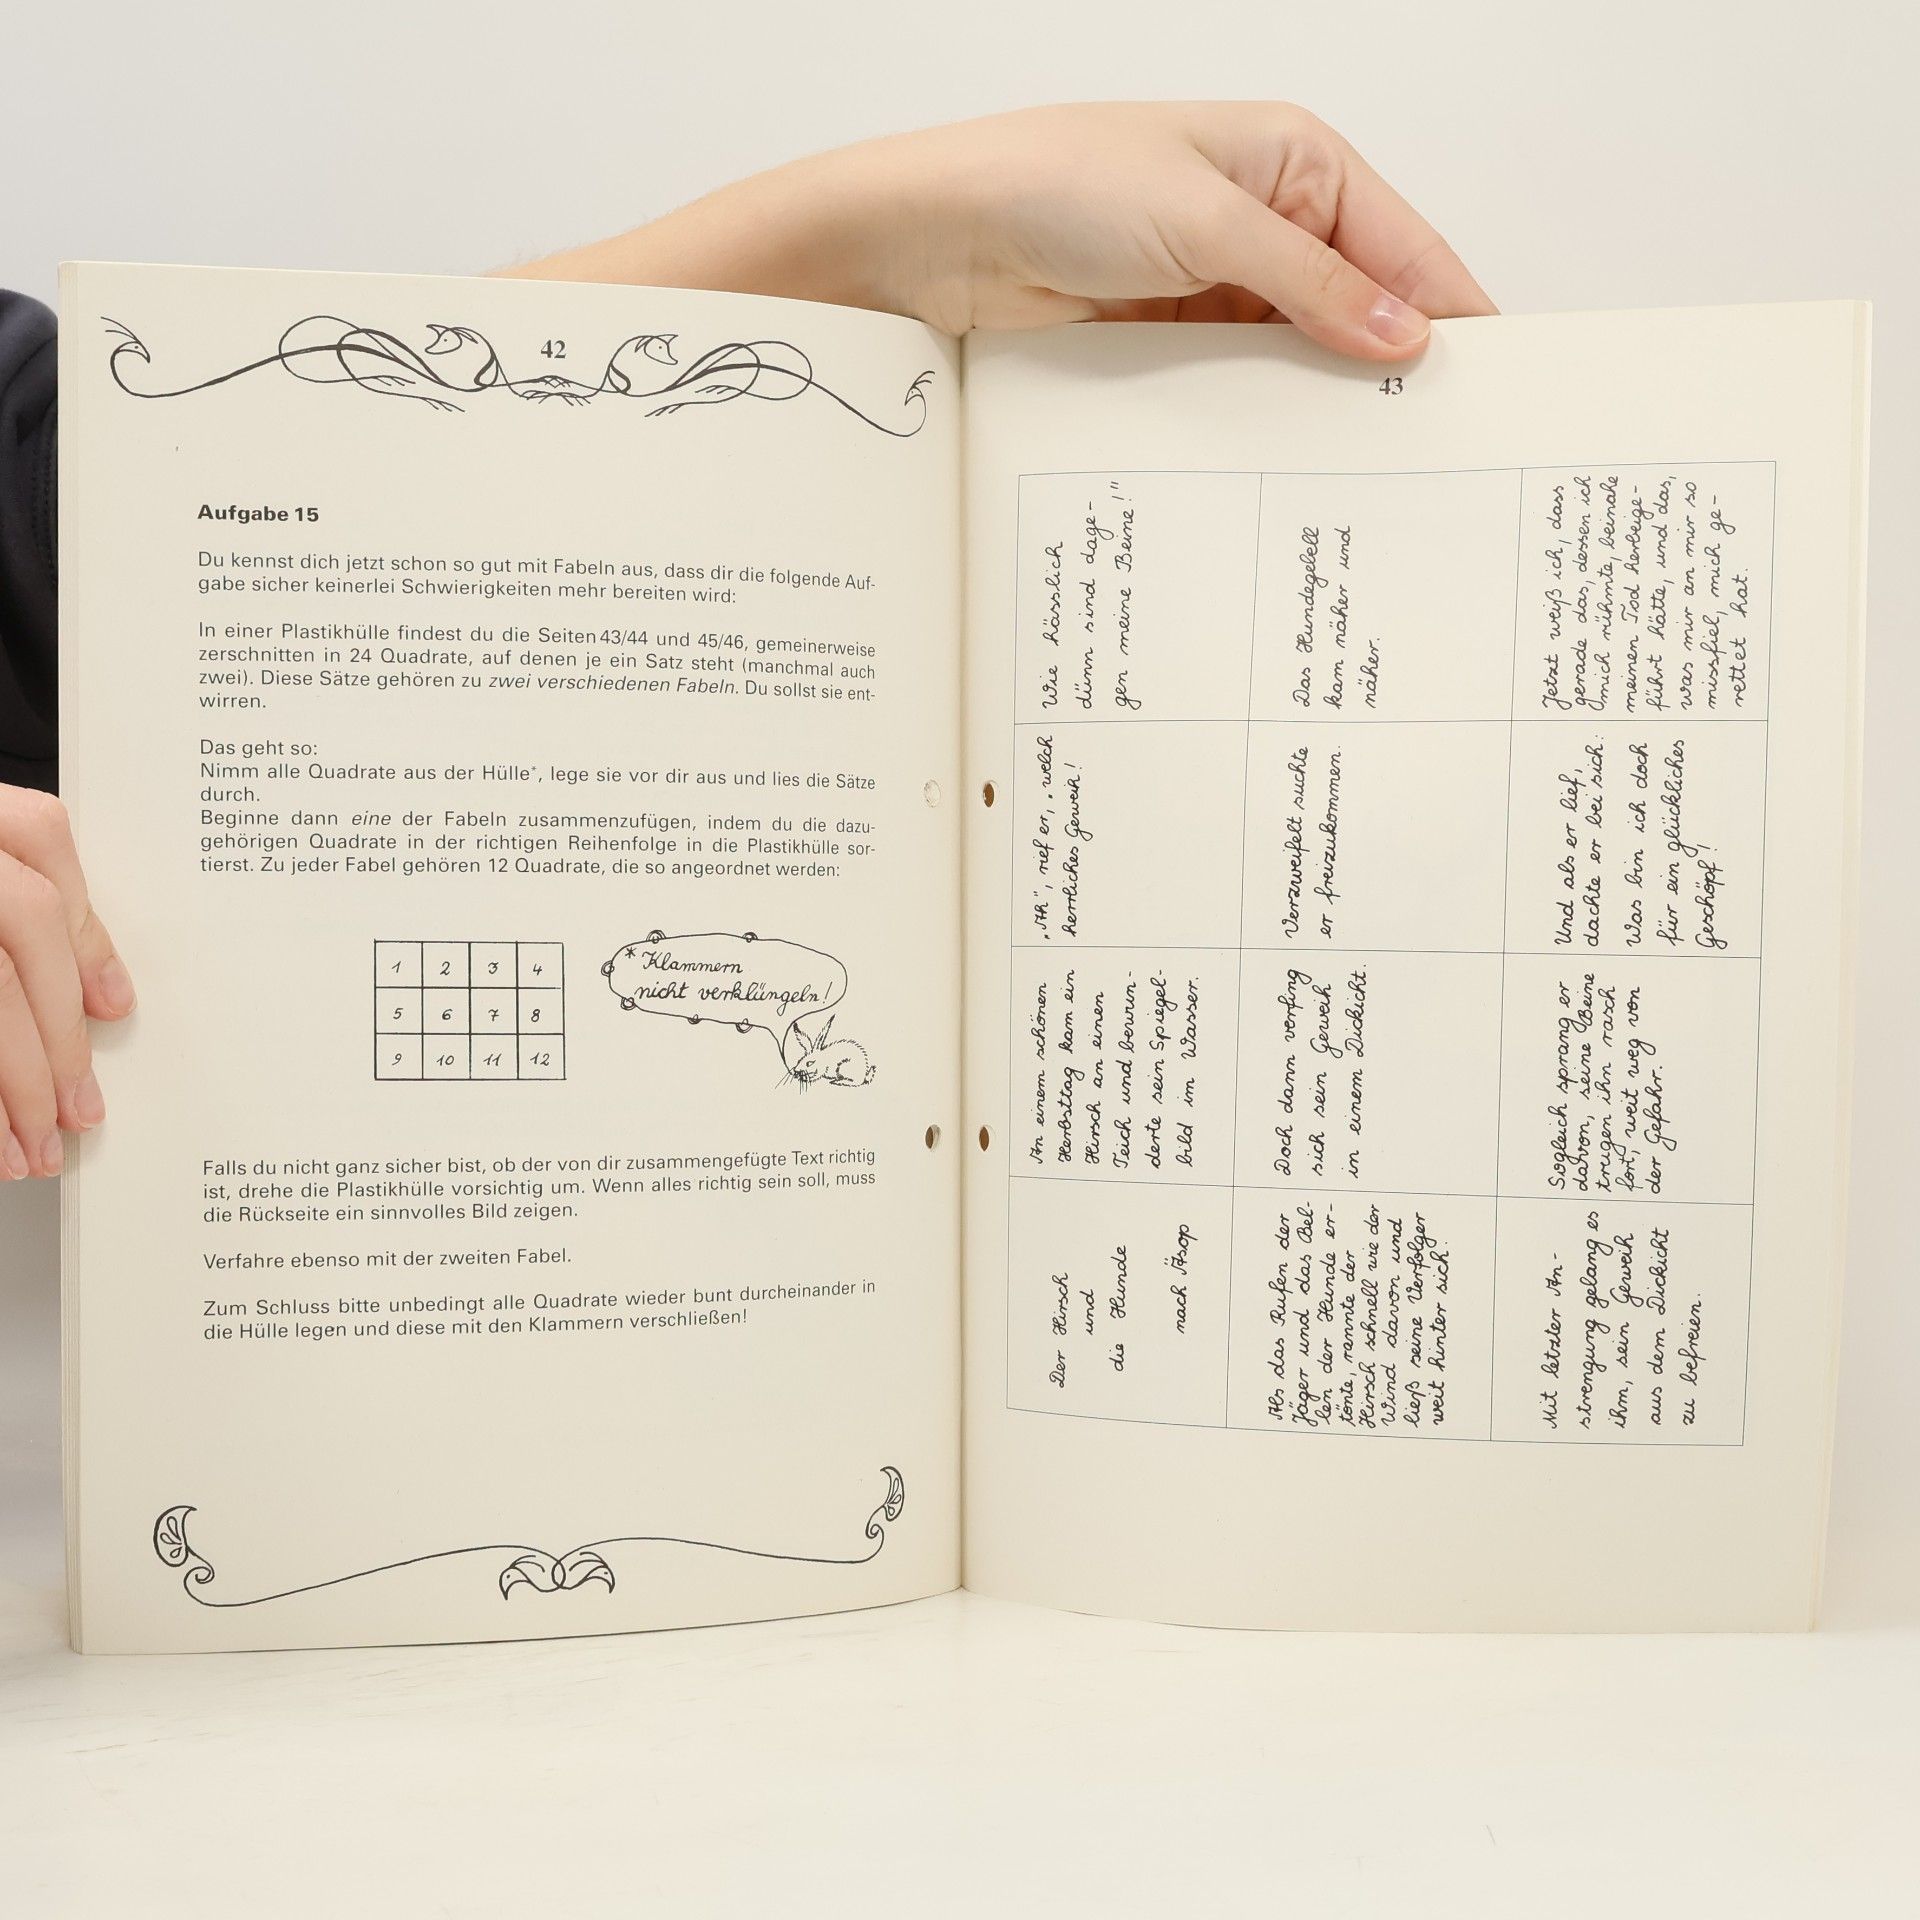 42
Aufgabe 15
Du kennst dich jetzt schon so gut mit Fabeln aus, dass dir die folgende Auf-
gabe sicher keinerlei Schwierigkeiten mehr bereiten wird:
In einer Plastikhülle findest du die Seiten 43/44 und 45/46, gemeinerweise
zerschnitten in 24 Quadrate, auf denen je ein Satz steht (manchmal auch
zwei). Diese Sätze gehören zu zwei verschiedenen Fabeln. Du sollst sie ent-
wirren.
Das geht so:
Nimm alle Quadrate aus der Hülle*, lege sie vor dir aus und lies die Sätze
durch.
Beginne dann eine der Fabeln zusammenzufügen, indem du die dazu-
gehörigen Quadrate in der richtigen Reihenfolge in die Plastikhülle sor-
tierst. Zu jeder Fabel gehören 12 Quadrate, die so angeordnet werden:
1 2 3 4
5 6 7 8
9 10 11 12
* Klammern
nicht verklüngeln!
Falls du nicht ganz sicher bist, ob der von dir zusammengefügte Text richtig
ist, drehe die Plastikhülle vorsichtig um. Wenn alles richtig sein soll, muss
die Rückseite ein sinnvolles Bild zeigen.
Verfahre ebenso mit der zweiten Fabel.
Zum Schluss bitte unbedingt alle Quadrate wieder bunt durcheinander in
die Hülle legen und diese mit den Klammern verschließen!
43
Der Hirsch
und
die Hunde
nach Äsop
An einem schönen
Herbsttag kam ein
Hirsch an einen
Teich und bewun-
derte sein Spiegel-
bild im Wasser.
„Ah", rief er, „welch
herrliches Geweih!
Wie hässlich
dünn sind dage-
gen meine Beine!"
Als das Rufen der
Jäger und das Bel-
len der Hunde er-
tönte, rannte der
Hirsch schnell wie der
Wind davon und
ließ seine Verfolger
weit hinter sich.
Doch dann verfing
sich sein Geweih
in einem Dickicht.
Verzweifelt suchte
er freizukommen.
Das Hundegebell
kam näher und
näher.
Mit letzter An-
strengung gelang es
ihm, sein Geweih
aus dem Dickicht
zu befreien.
Sogleich sprang er
davon, seine Beine
trugen ihn rasch
fort, weit weg von
der Gefahr.
Und als er lief,
dachte er bei sich:
Was bin ich doch
für ein glückliches
Geschöpf!
Jetzt weiß ich, dass
gerade das, dessen ich
mich rühmte, beinahe
meinen Tod herbeige-
führt hätte, und das,
was mir an mir so
missfiel, mich ge-
rettet hat.